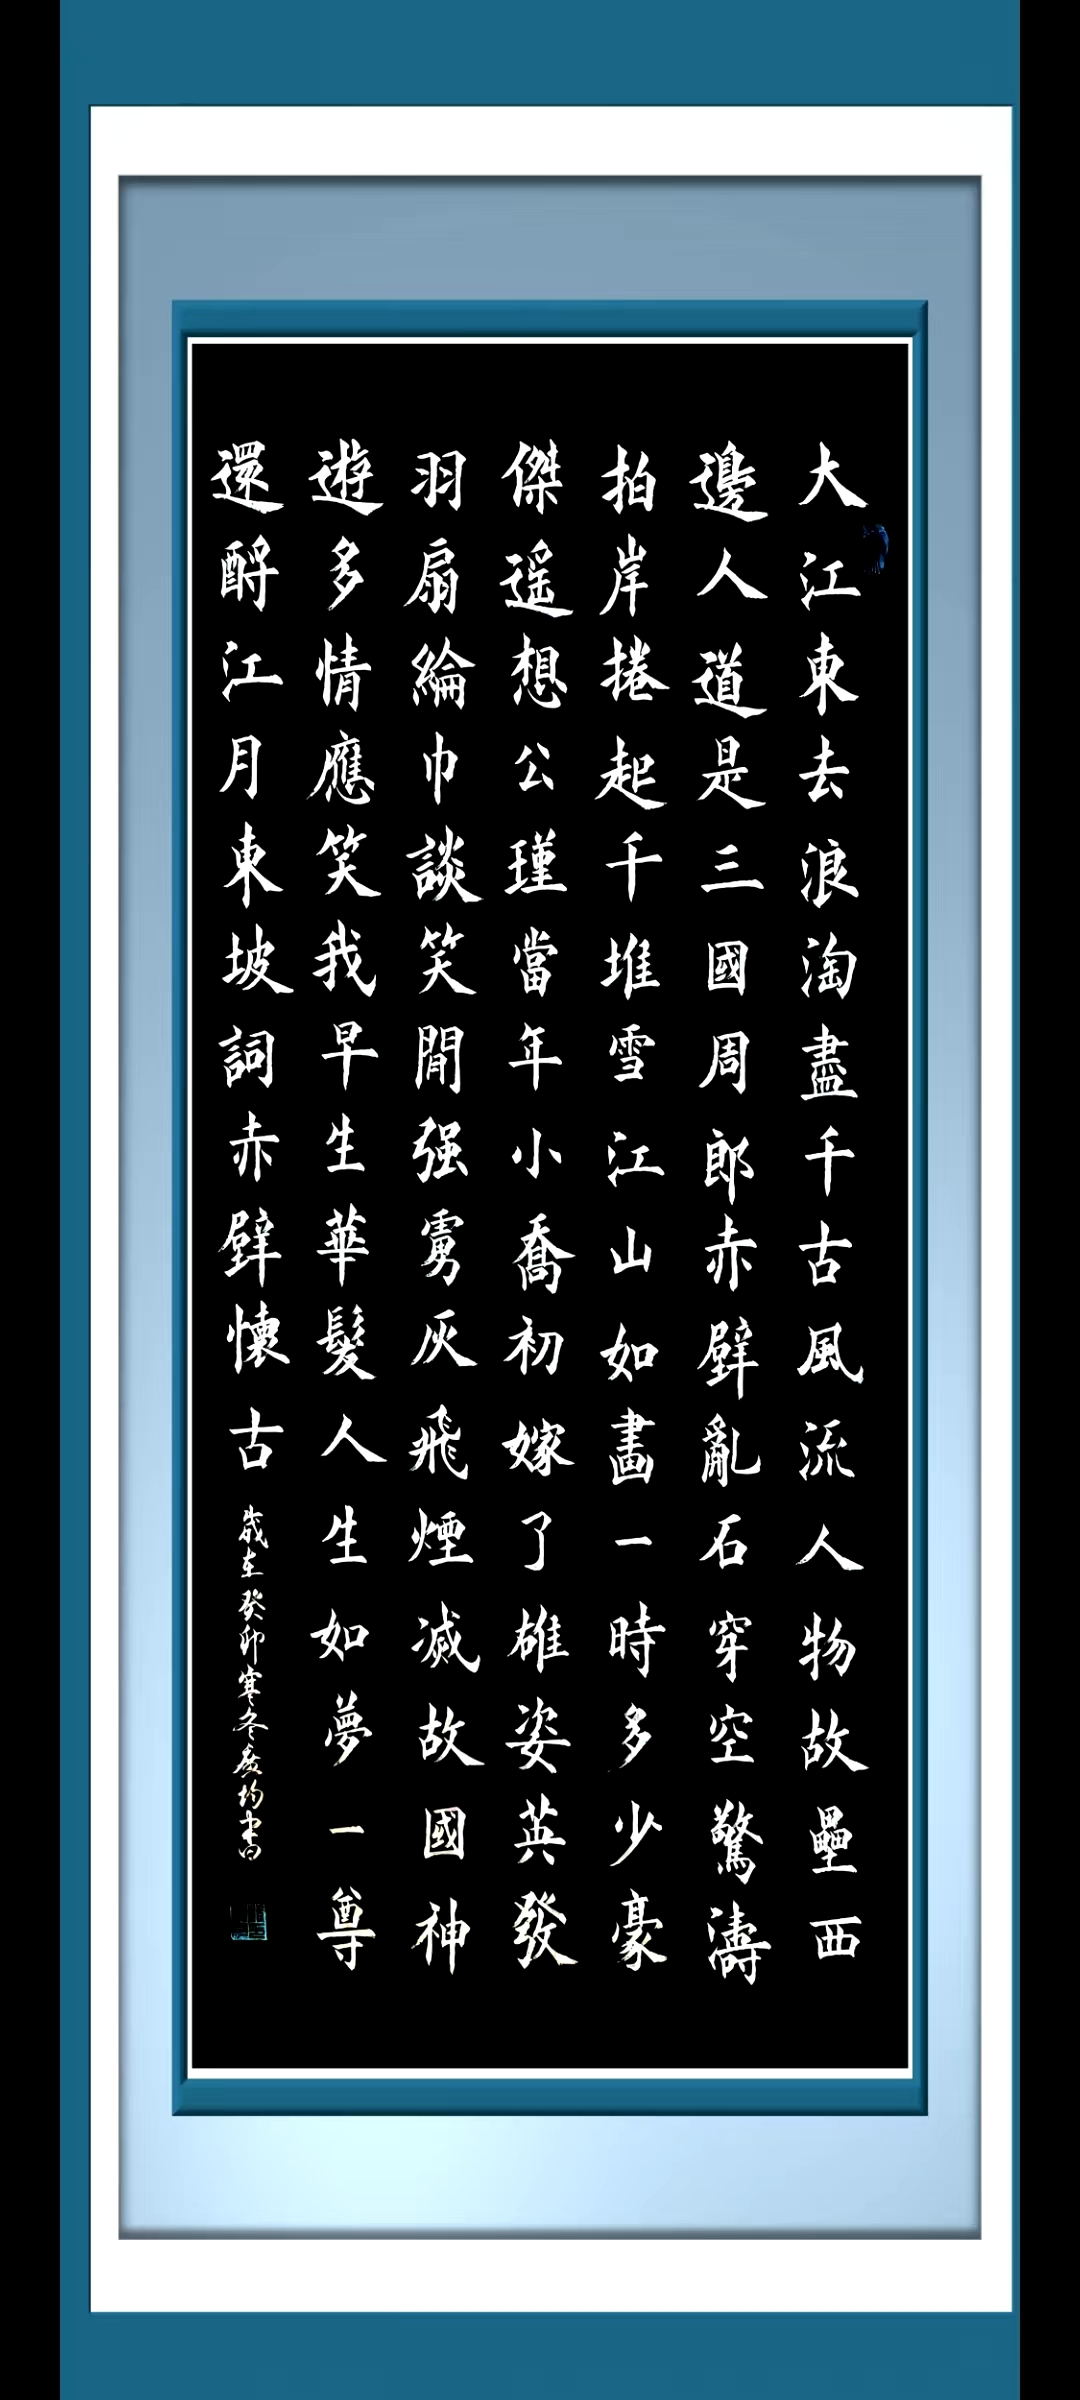 大江東去浪淘盡千古風流人物故壘西
邊人道是三國周郎赤壁亂石穿空驚濤
拍岸捲起千堆雪江山如畫一時多少豪
傑遥想公瑾當年小喬初嫁了雄姿英發
羽扇綸巾談笑間强虜灰飛煙滅故國神
遊多情應笑我早生華髮人生如夢一尊
還酹江月東坡詞赤壁懷古
歲在癸卯寒冬廣均書